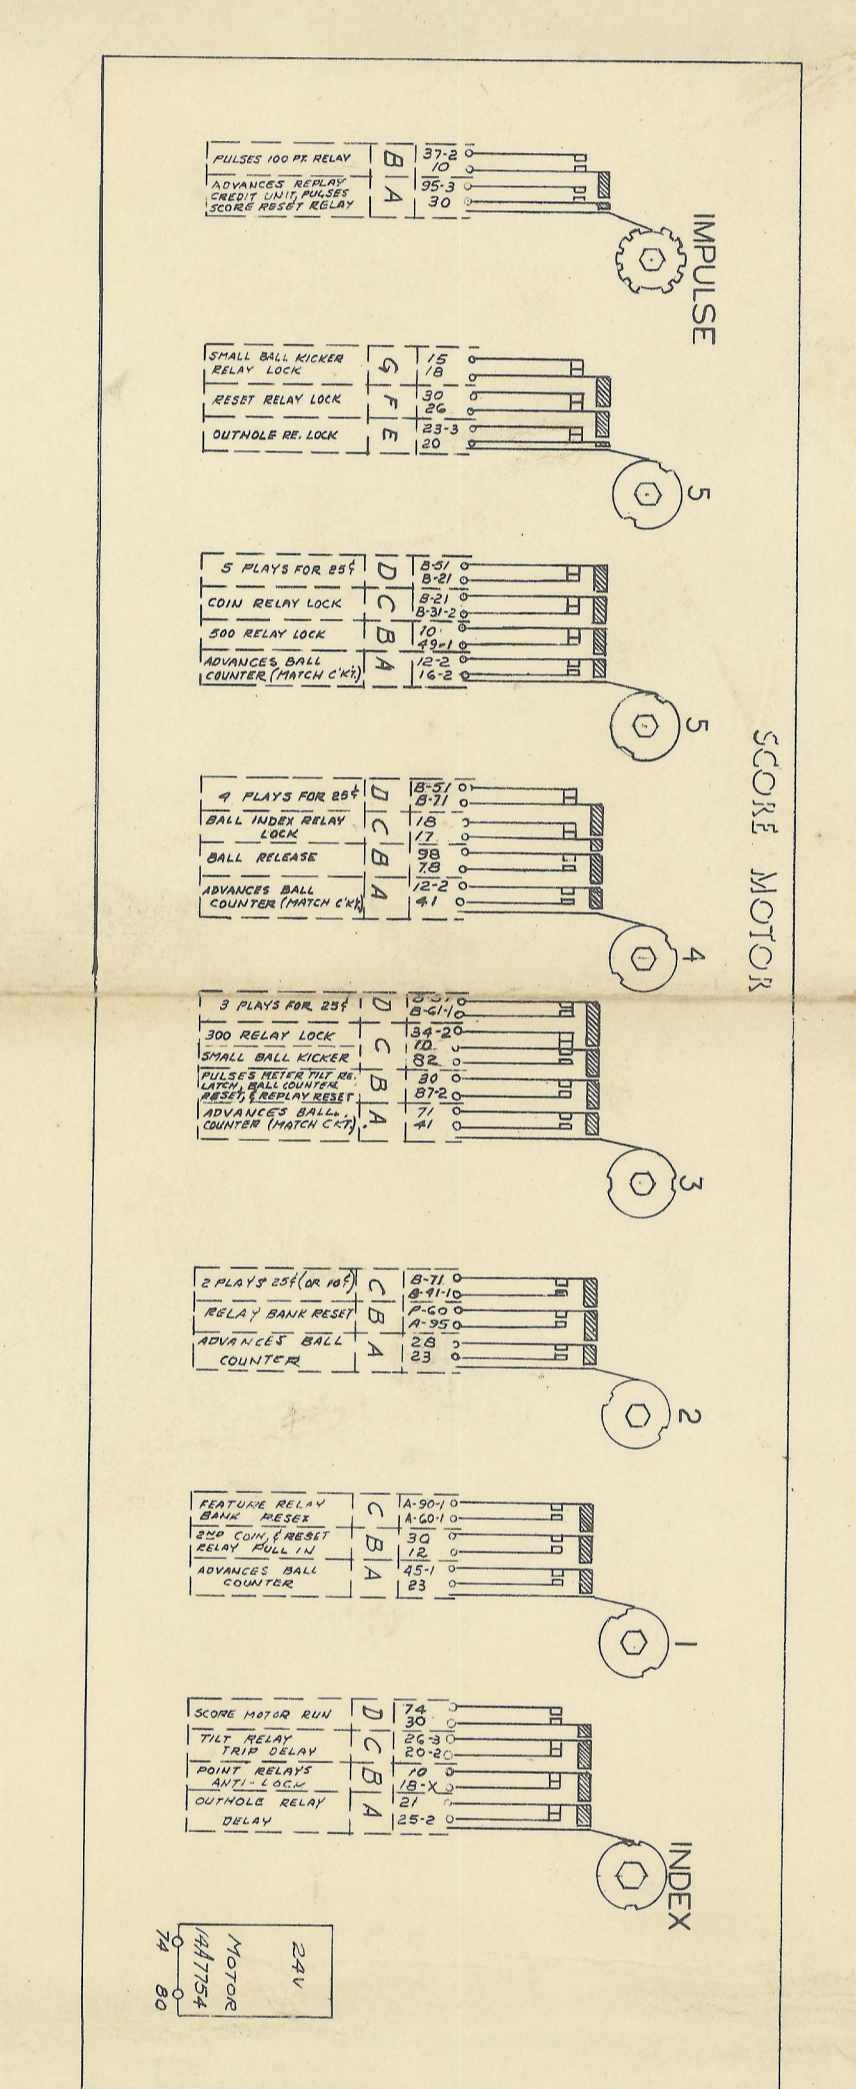 IMPULSE
PULSES 100 PT. RELAY
B
37-2
10
ADVANCES REPLAY
CREDIT UNIT, PULSES
SCORE RESET RELAY
A
95-3
30
SMALL BALL KICKER
RELAY LOCK
G
15
18
RESET RELAY LOCK
F
30
26
OUTHOLE RE. LOCK
E
23-3
20
5
5 PLAYS FOR 25¢
D
B-51
B-21
COIN RELAY LOCK
C
B-21
B-31-2
500 RELAY LOCK
B
10
49-1
ADVANCES BALL
COUNTER (MATCH C'KT.)
A
12-2
16-2
5
SCORE MOTOR
4 PLAYS FOR 25¢
D
B-51
B-71
BALL INDEX RELAY
LOCK
C
18
17
BALL RELEASE
B
98
78
ADVANCES BALL
COUNTER (MATCH C'KT)
A
12-2
41
4
3 PLAYS FOR 25¢
D
B-61-1
300 RELAY LOCK
C
34-2
10
SMALL BALL KICKER
82
PULSES METER TILT RE.
LATCH, BALL COUNTER
RESET, & REPLAY RESET
B
30
87-2
ADVANCES BALL
COUNTER (MATCH CKT)
A
71
41
3
2 PLAYS 25¢ (OR 10¢)
C
B-71
B-41-1
RELAY BANK RESET
B
P-60
A-95
ADVANCES BALL
COUNTER
A
28
23
2
FEATURE RELAY
BANK RESET
C
A-90-1
A-60-1
2ND COIN, & RESET
RELAY PULL IN
B
30
12
ADVANCES BALL
COUNTER
A
45-1
23
1
SCORE MOTOR RUN
D
74
30
TILT RELAY
TRIP DELAY
C
26-3
20-2
POINT RELAYS
ANTI-LOCK
B
10
18-X
OUTHOLE RELAY
DELAY
A
21
25-2
INDEX
24V
MOTOR
14A7754
74 80